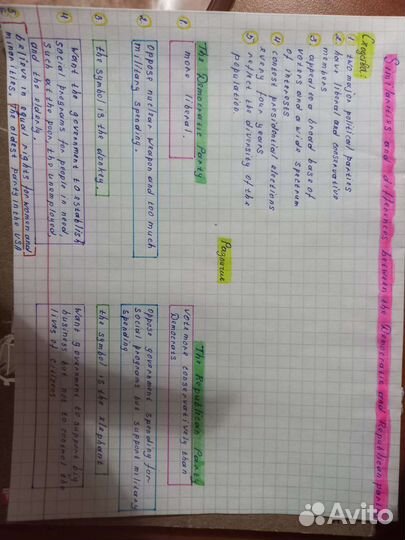 Similarities and differences between the Democratic and Republican party
Сходства:
1 two major political parties
2 have liberal and conservative
members
3 appeal to a broad base of
voters and a wide spectrum
of interests
4 contest presidential elections
every four years
5 reflect the diversity of the
population
Различие
The Democratic Party
1 more liberal.
2 Oppose nuclear weapon and too much
military spending.
3 the symbol is the donkey.
4 Want the government to establish
social programs for people in need,
such as the poor, the unemployed,
and the elderly.
5 believe in equal rights for women and
minorities. The oldest party in the USA
The Republican Party
vote more conservatively than
Democrats
Oppose government spending for
social programs but support military
spending
the symbol is the elephant
Want government to support big
business but not to control the
lives of citizens
Avito